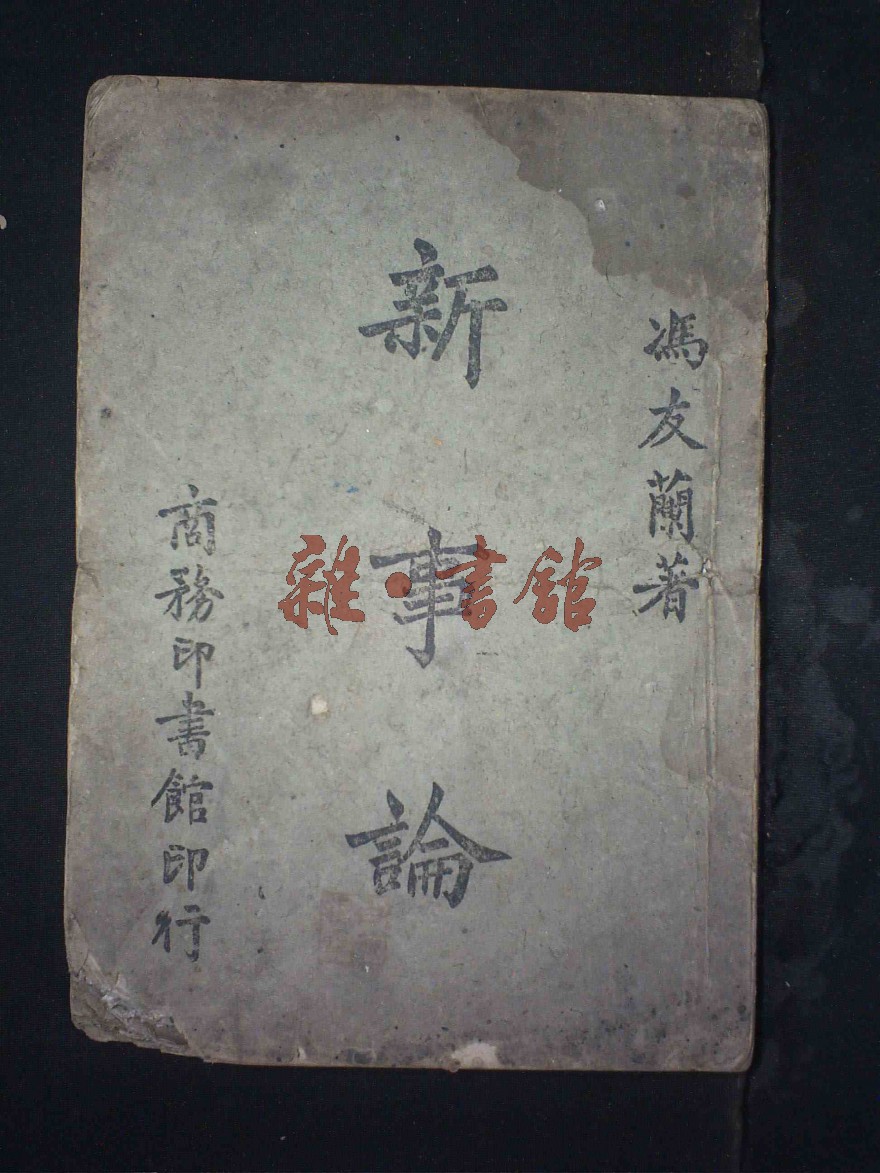 馮友蘭著
新事論
商務印書館印行
雜·書館